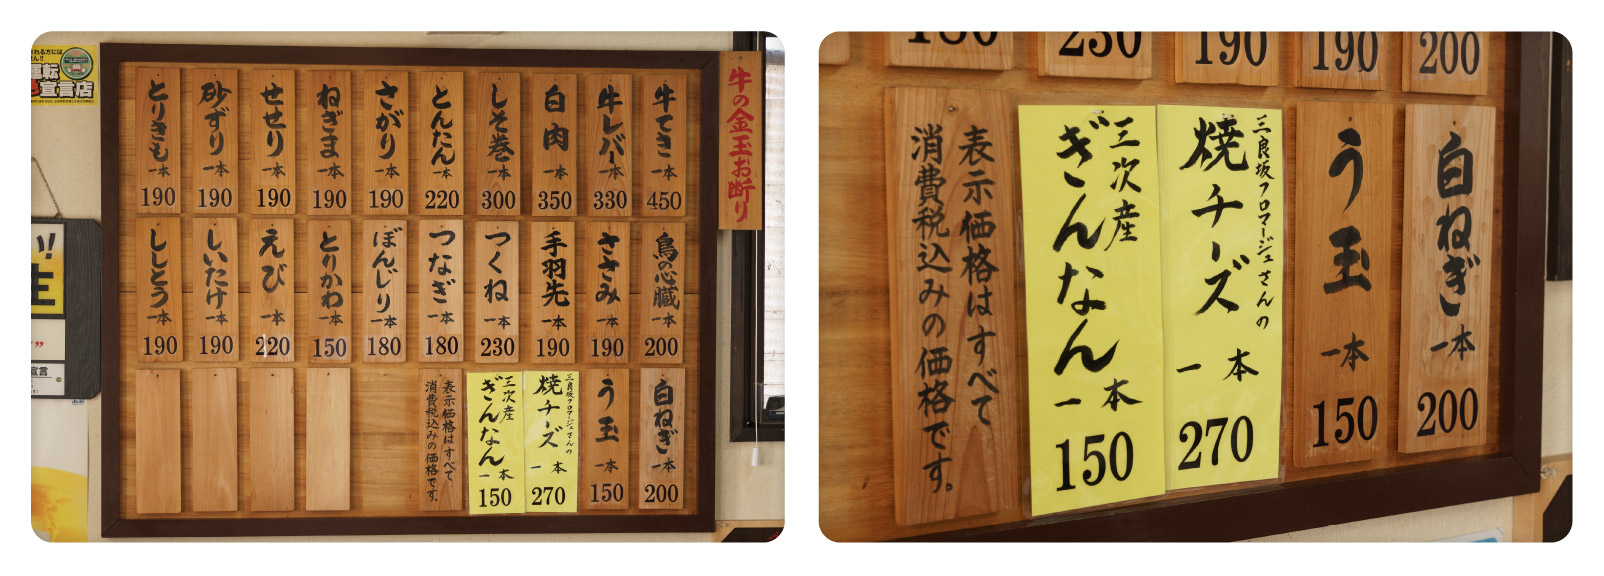 牛の金玉お断り
牛てき 一本 450
牛レバー 一本 330
白肉 一本 350
しそ巻 一本 300
とんたん 一本 220
さがり 一本 190
ねぎま 一本 190
せせり 一本 190
砂ずり 一本 190
とりきも 一本 190
鳥の心臓 一本 200
ささみ 一本 190
手羽先 一本 190
つくね 一本 230
つなぎ 一本 180
ぼんじり 一本 180
とりかわ 一本 150
えび 一本 220
しいたけ 一本 190
ししとう 一本 190
白ねぎ 一本 200
う玉 一本 150
三良坂フロマージュさんの
焼チーズ
一本
270
三次産
ぎんなん
一本
150
表示価格はすべて
消費税込みの価格です。
宣言店
宣言
230
190
190
200
白ねぎ
一本
200
う玉
一本
150
三良坂フロマージュさんの
焼チーズ
一本
270
三次産
ぎんなん
一本
150
表示価格はすべて
消費税込みの価格です。